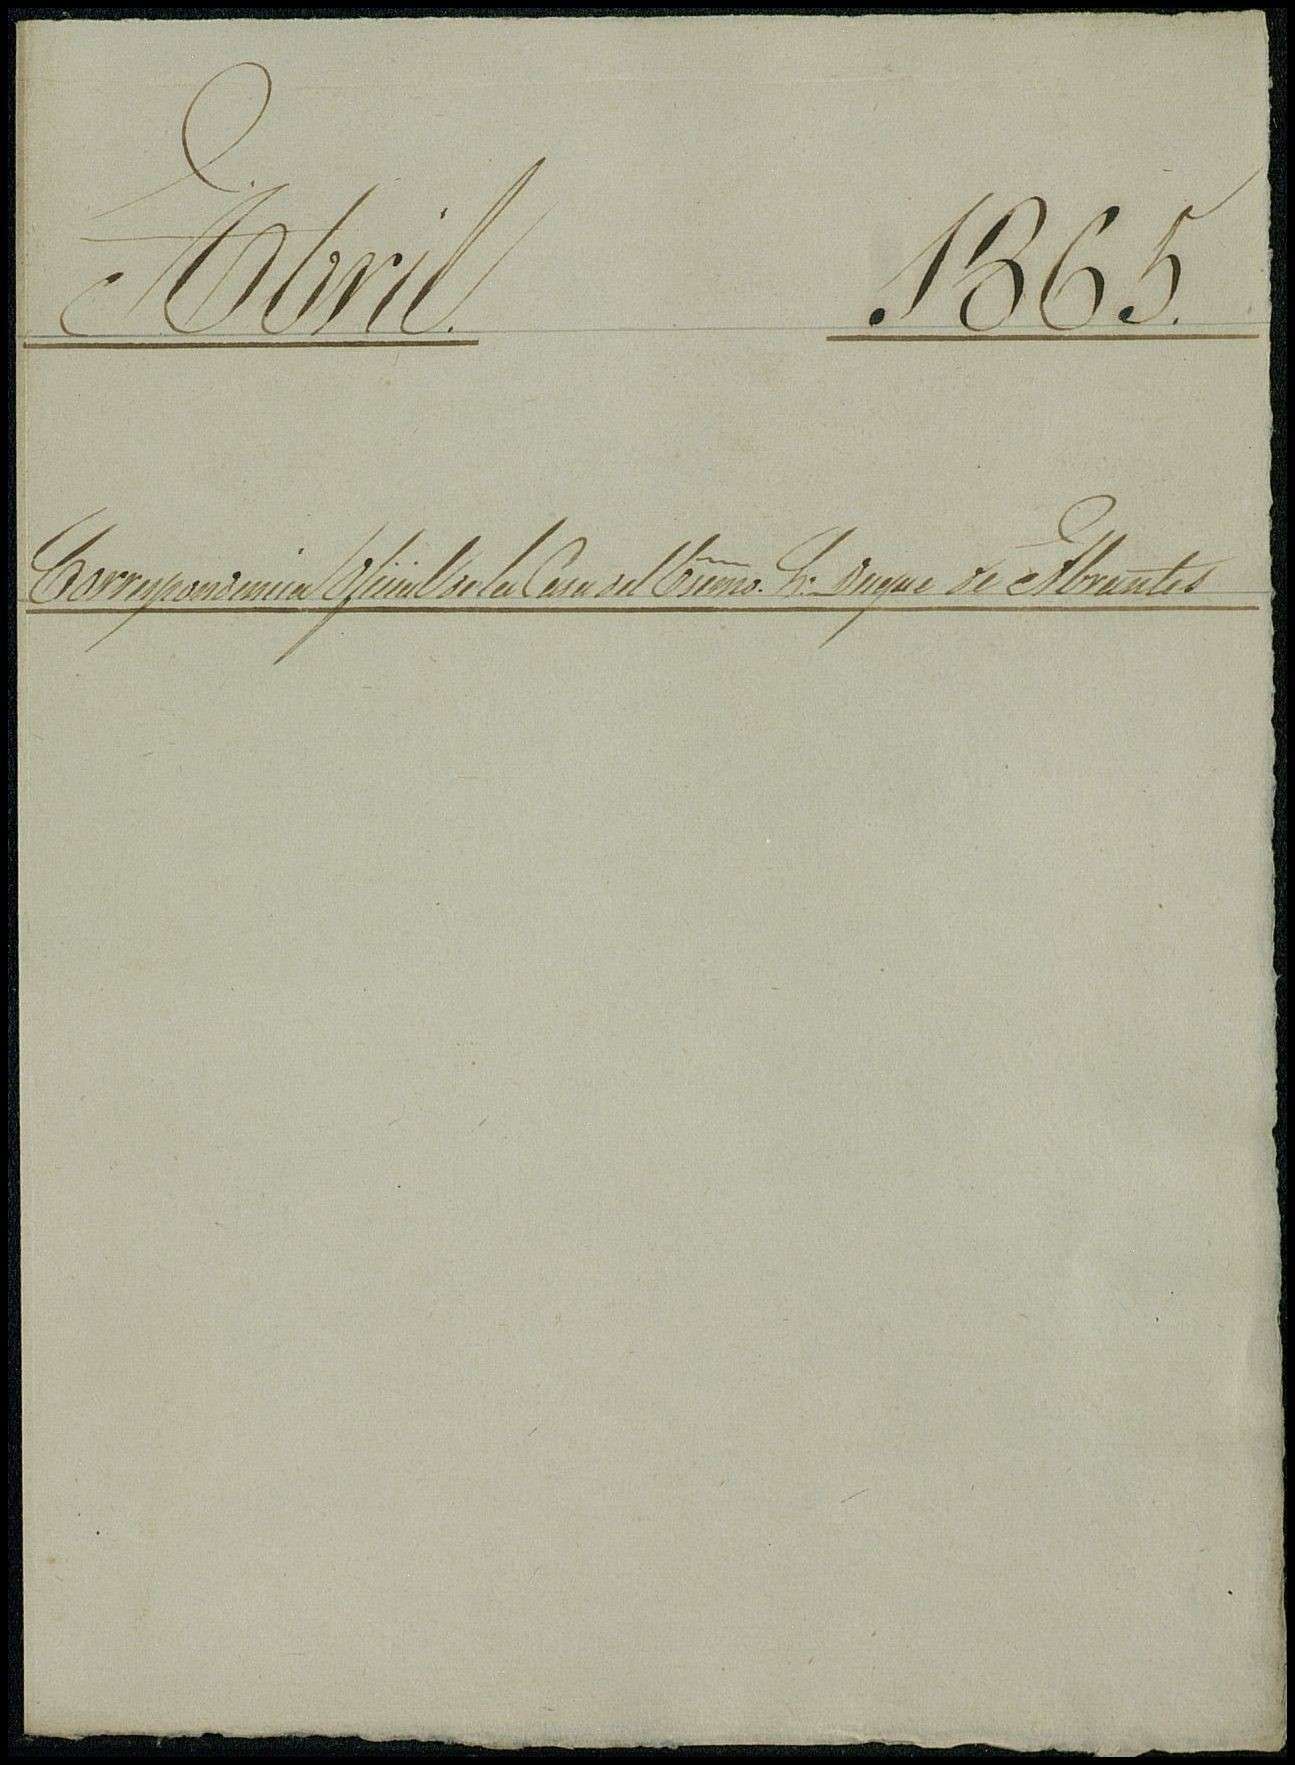 Abril. 1865.
Correspondencia Oficial de la Casa del Excmo. Sr. Duque de Abrantes